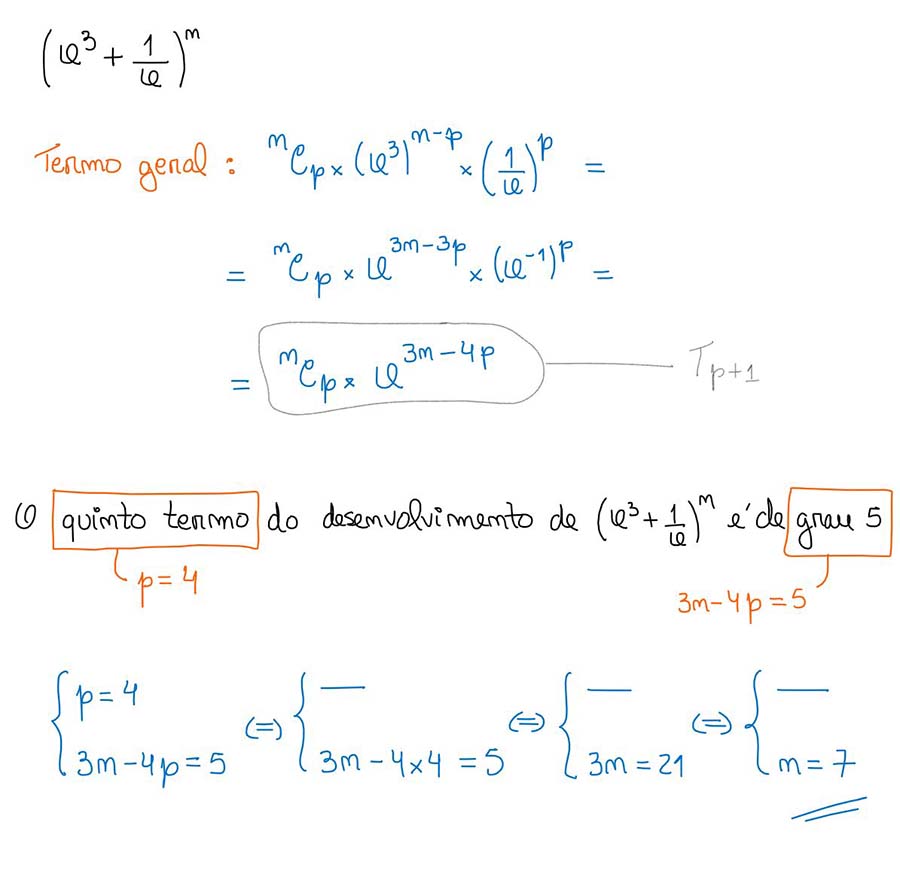 (x³ + 1/x)ⁿ
Termo geral : ⁿCₚ × (x³)ⁿ⁻ᵖ × (1/x)ᵖ =
= ⁿCₚ × x³ⁿ⁻³ᵖ × (x⁻¹)ᵖ =
= ⁿCₚ × x³ⁿ⁻⁴ᵖ — Tₚ₊₁
O quinto termo do desenvolvimento de (x³ + 1/x)ⁿ é de grau 5
p = 4
3n - 4p = 5
{ p = 4 ; 3n - 4p = 5 (=) { — ; 3n - 4×4 = 5 (=) { — ; 3n = 21 (=) { — ; n = 7